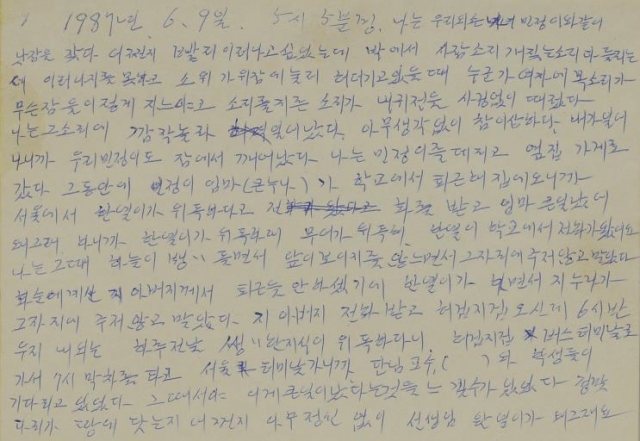 1987년. 6. 9일. 5시 5분경. 나는 우리외손녀 민정이와같이
낮잠을 잤다 이르나고 싶었는데 밖에서 사람소리 개짖는소리 다 들리는
데 이러나지를 못하고 소위 가위잠에 눌려 있을때 누군가 여자에 목소리가
무슨잠을 이렇게 자느냐고 소리를지른 소리가 내귀전을 사정없이 때렸다
나는 그소리에 깜작놀라 일어났다. 아무생각없이 참이상하다. 내가일어
나니까 우리민정이도 잠에서 깨어났다 나는 민정이를 데리고 옆집 가게로
갔다 그동안에 민정이 엄마(큰누나)가 학교에서 퇴근해 집에오니까
서울에서 한열이가 위독하다고 전화를 받고 엄마 큰일났네
왜그래 하니까 한열이가 위독하대 무어가 위독해, 한열이 학교에서 전화가왔네요
나는 그때 하늘이 빙빙 돌면서 앞이보이지를 않느면서 그자리에 주저 앉고 말았다
아버지께서 퇴근도 안하셨기에 한열이가 하면서 지누나가
그자리에 주저 앉고 말았다. 지 아버지 전화 받고 허겁지겁 오신게 6시반
우리 내외는 하루전날 생생한자식이 위독하다니, 허겁지겁 버스터미날로
가서 7시 막차를 타고 서울 터미날가니까 단님교수( )와 학생들이
기다리고 있었다. 그때서야 이게 큰일이났다는것을 느낄수가 있었다
다리가 땅에 닷는지 아무정신 없이 선생님 한열이가 왜그래요